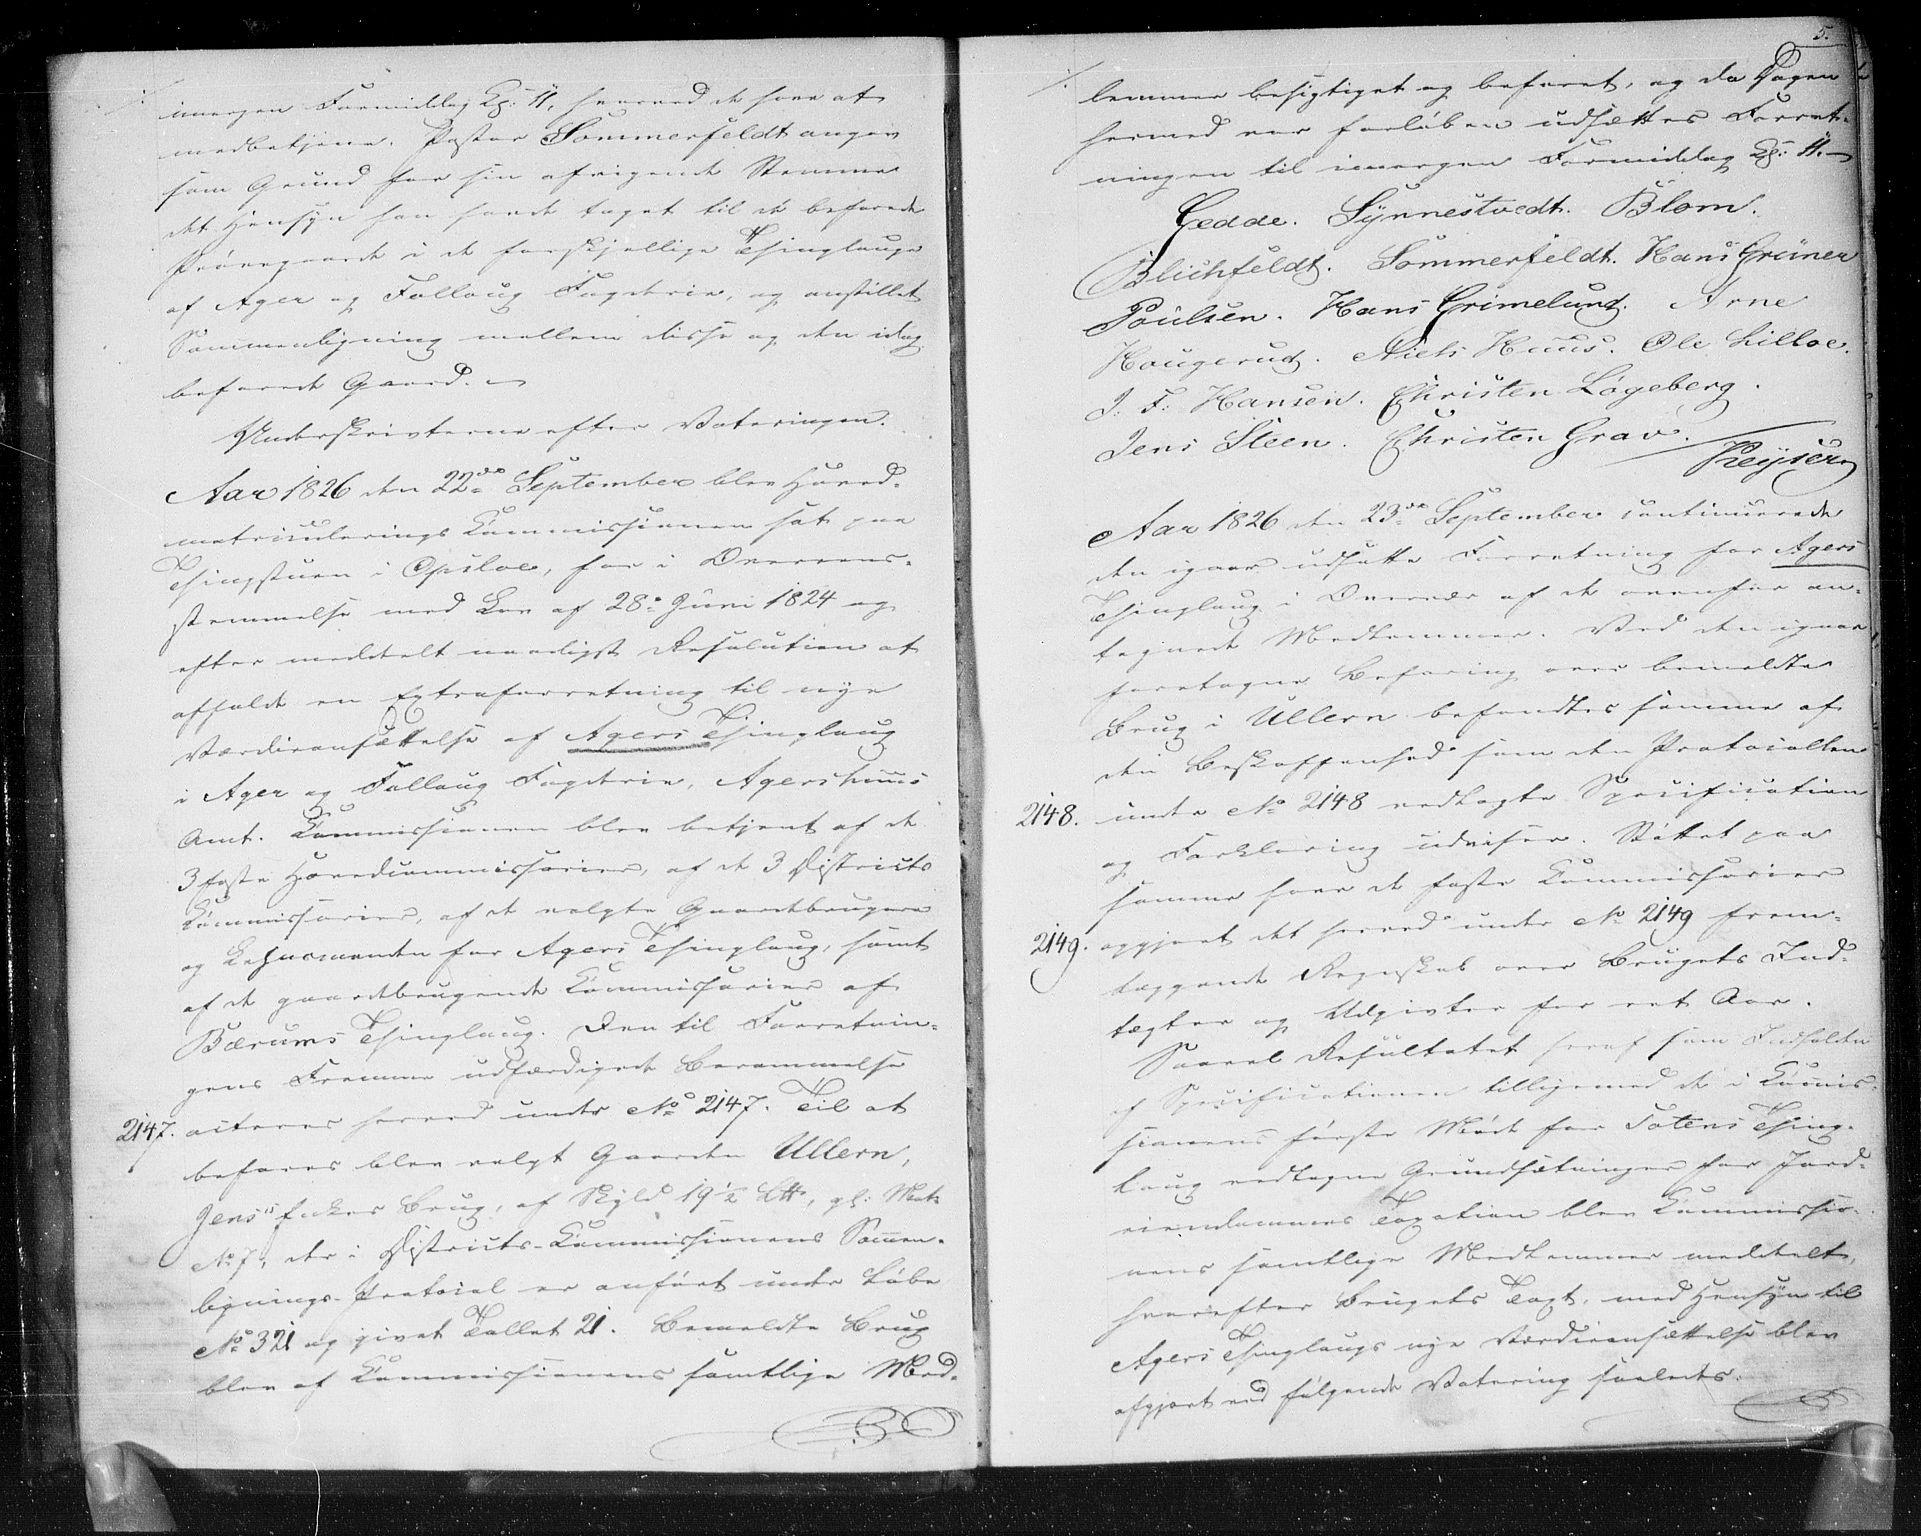 imorgen Formiddag Kl: 11, hvorved de have at
medbetjene. Pastor Sommerfeldt angav
som Grund for sin afvigende Stemme
det Hensyn han havde taget til de befarede
Prøvegaarde i de forskjellige Thinglauge
af Ager og Follaug Fogderie, og anstillet
Sammenligning mellem disse og den idag
befarede Gaard.
Underskrivterne efter Voteringen.
Aar 1826 den 22de September blev Hoved-
matriculerings Commissionen sat paa
Thingstuen i Opsloe, for i Overeens-
stemmelse med Lov af 28de Juni 1824 og
efter meddelt naadigst Resolution at
afholde en Extraforretning til nye
Værdieansættelse af Agers Thinglaug
i Ager og Follaug Fogderie, Agershuus
Amt. Commissionen blev betjent af de
3 faste Hovedcommissarier, af de 3 Districts
Commissarier, af de valgte Gaardbrugere
og Lehnsmænd for Agers Thinglaug, samt
af de gaardbrugende Commissarier af
Bærums Thinglaug. Den til Forretnin-
gens Fremme udfærdigede Berammelse
2147. acteres herved under No 2147. Til at
befares blev valgt Gaarden Ullern,
Jens Brug, af Skyld 19 1/2 L℔, gl: Matr
No 7, der i Districts-Commissionens Sammen-
lignings-Protocol er anført under Løbe
No 321 og givet Tallet 21. Bemeldte Brug
blev af Commissionens samtlige Med-
5.
lemmer besigtiget og befaret, og da Dagen
hermed var forløben udsættes Forret-
ningen til imorgen Formiddag Kl: 11.
Gedde. Synnestvedt. Blom.
Blichfeldt. Sommerfeldt. Hans Grüner
Poulsen. Hans Grimelund. Arne
Haugerud. Niels Huus. Ole Lilloe.
J. F. Hansen. Christen Løgeberg.
Jens Steen. Christen Grav.
Keyser
Aar 1826 den 23de September continuerede
den igaar udsatte Forretning for Agers
Thinglaug i Overvær af de ovenfor an-
tegnede Medlemmer. Ved den igaar
foretagne Befaring over bemeldte
Brug i Ullern befandtes samme af
den Beskaffenhed som den Protocollen
2148. under No 2148 vedlagte Specification
og Forklaring udviser. Støttet paa
samme have de faste Commissarier
2149. opgjort det herved under No 2149 frem-
læggende Regnskab over Brugets Ind-
tægter og Udgivter for eet Aar.
Saavel Resultatet heraf som Indholdet
af Specificationen tilligemed de i Commis-
sionens første Møde for Totens Thing-
laug vedtagne Grundsætninger for Jord-
eiendommes Taxation blev Commissio-
nens samtlige Medlemmer meddelt,
hvorefter Brugets Taxt, med Hensyn til
Agers Thinglaugs nye Værdieansættelse blev
afgjort ved følgende Votering saaledes.